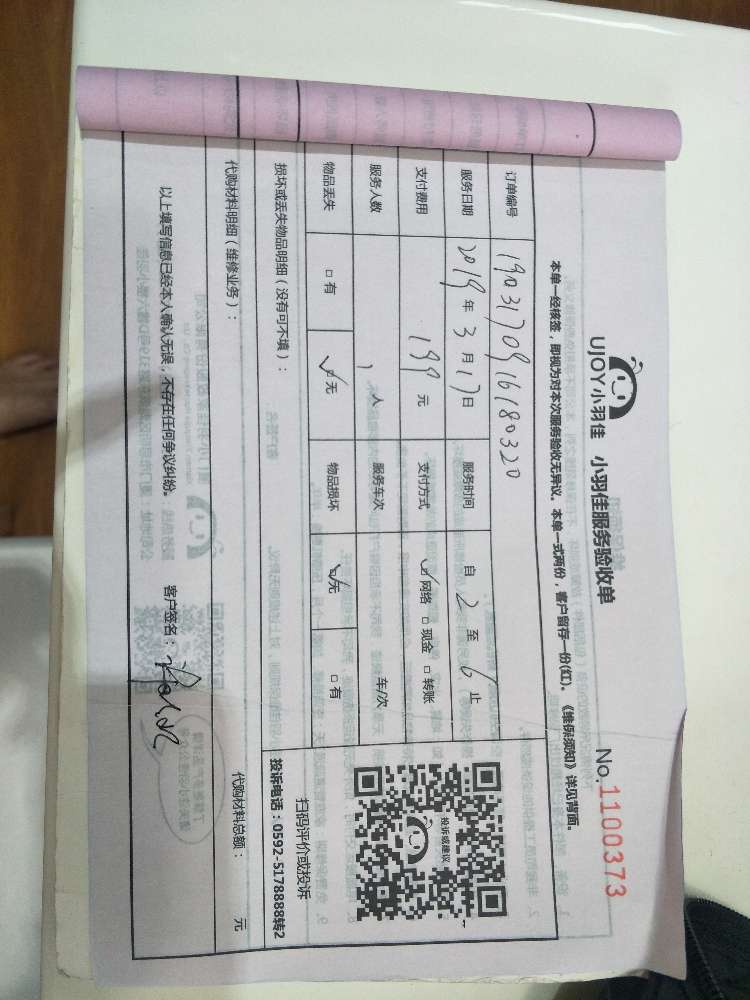 UJOY小羽佳 小羽佳服务验收单 No.1100373
本单一经核签，即视为对本次服务验收无异议。本单一式两份，客户留存一份(红)。《维保须知》详见背面。
订单编号 1903170916180320
服务日期 2019年3月17日 服务时间 自2至6止
支付费用 199元 支付方式 ☑网络 □现金 □转账
服务人数 1人 服务车次 车/次
物品丢失 □有 ☑无 物品损坏 ☑无 □有
投诉或建议
扫码评价或投诉
投诉电话：0592-5178888转2
损坏或丢失物品明细（没有可不填）：
代购材料明细（维修业务）： 代购材料总额： 元
以上填写信息已经本人确认无误，不存在任何争议纠纷。 客户签名：